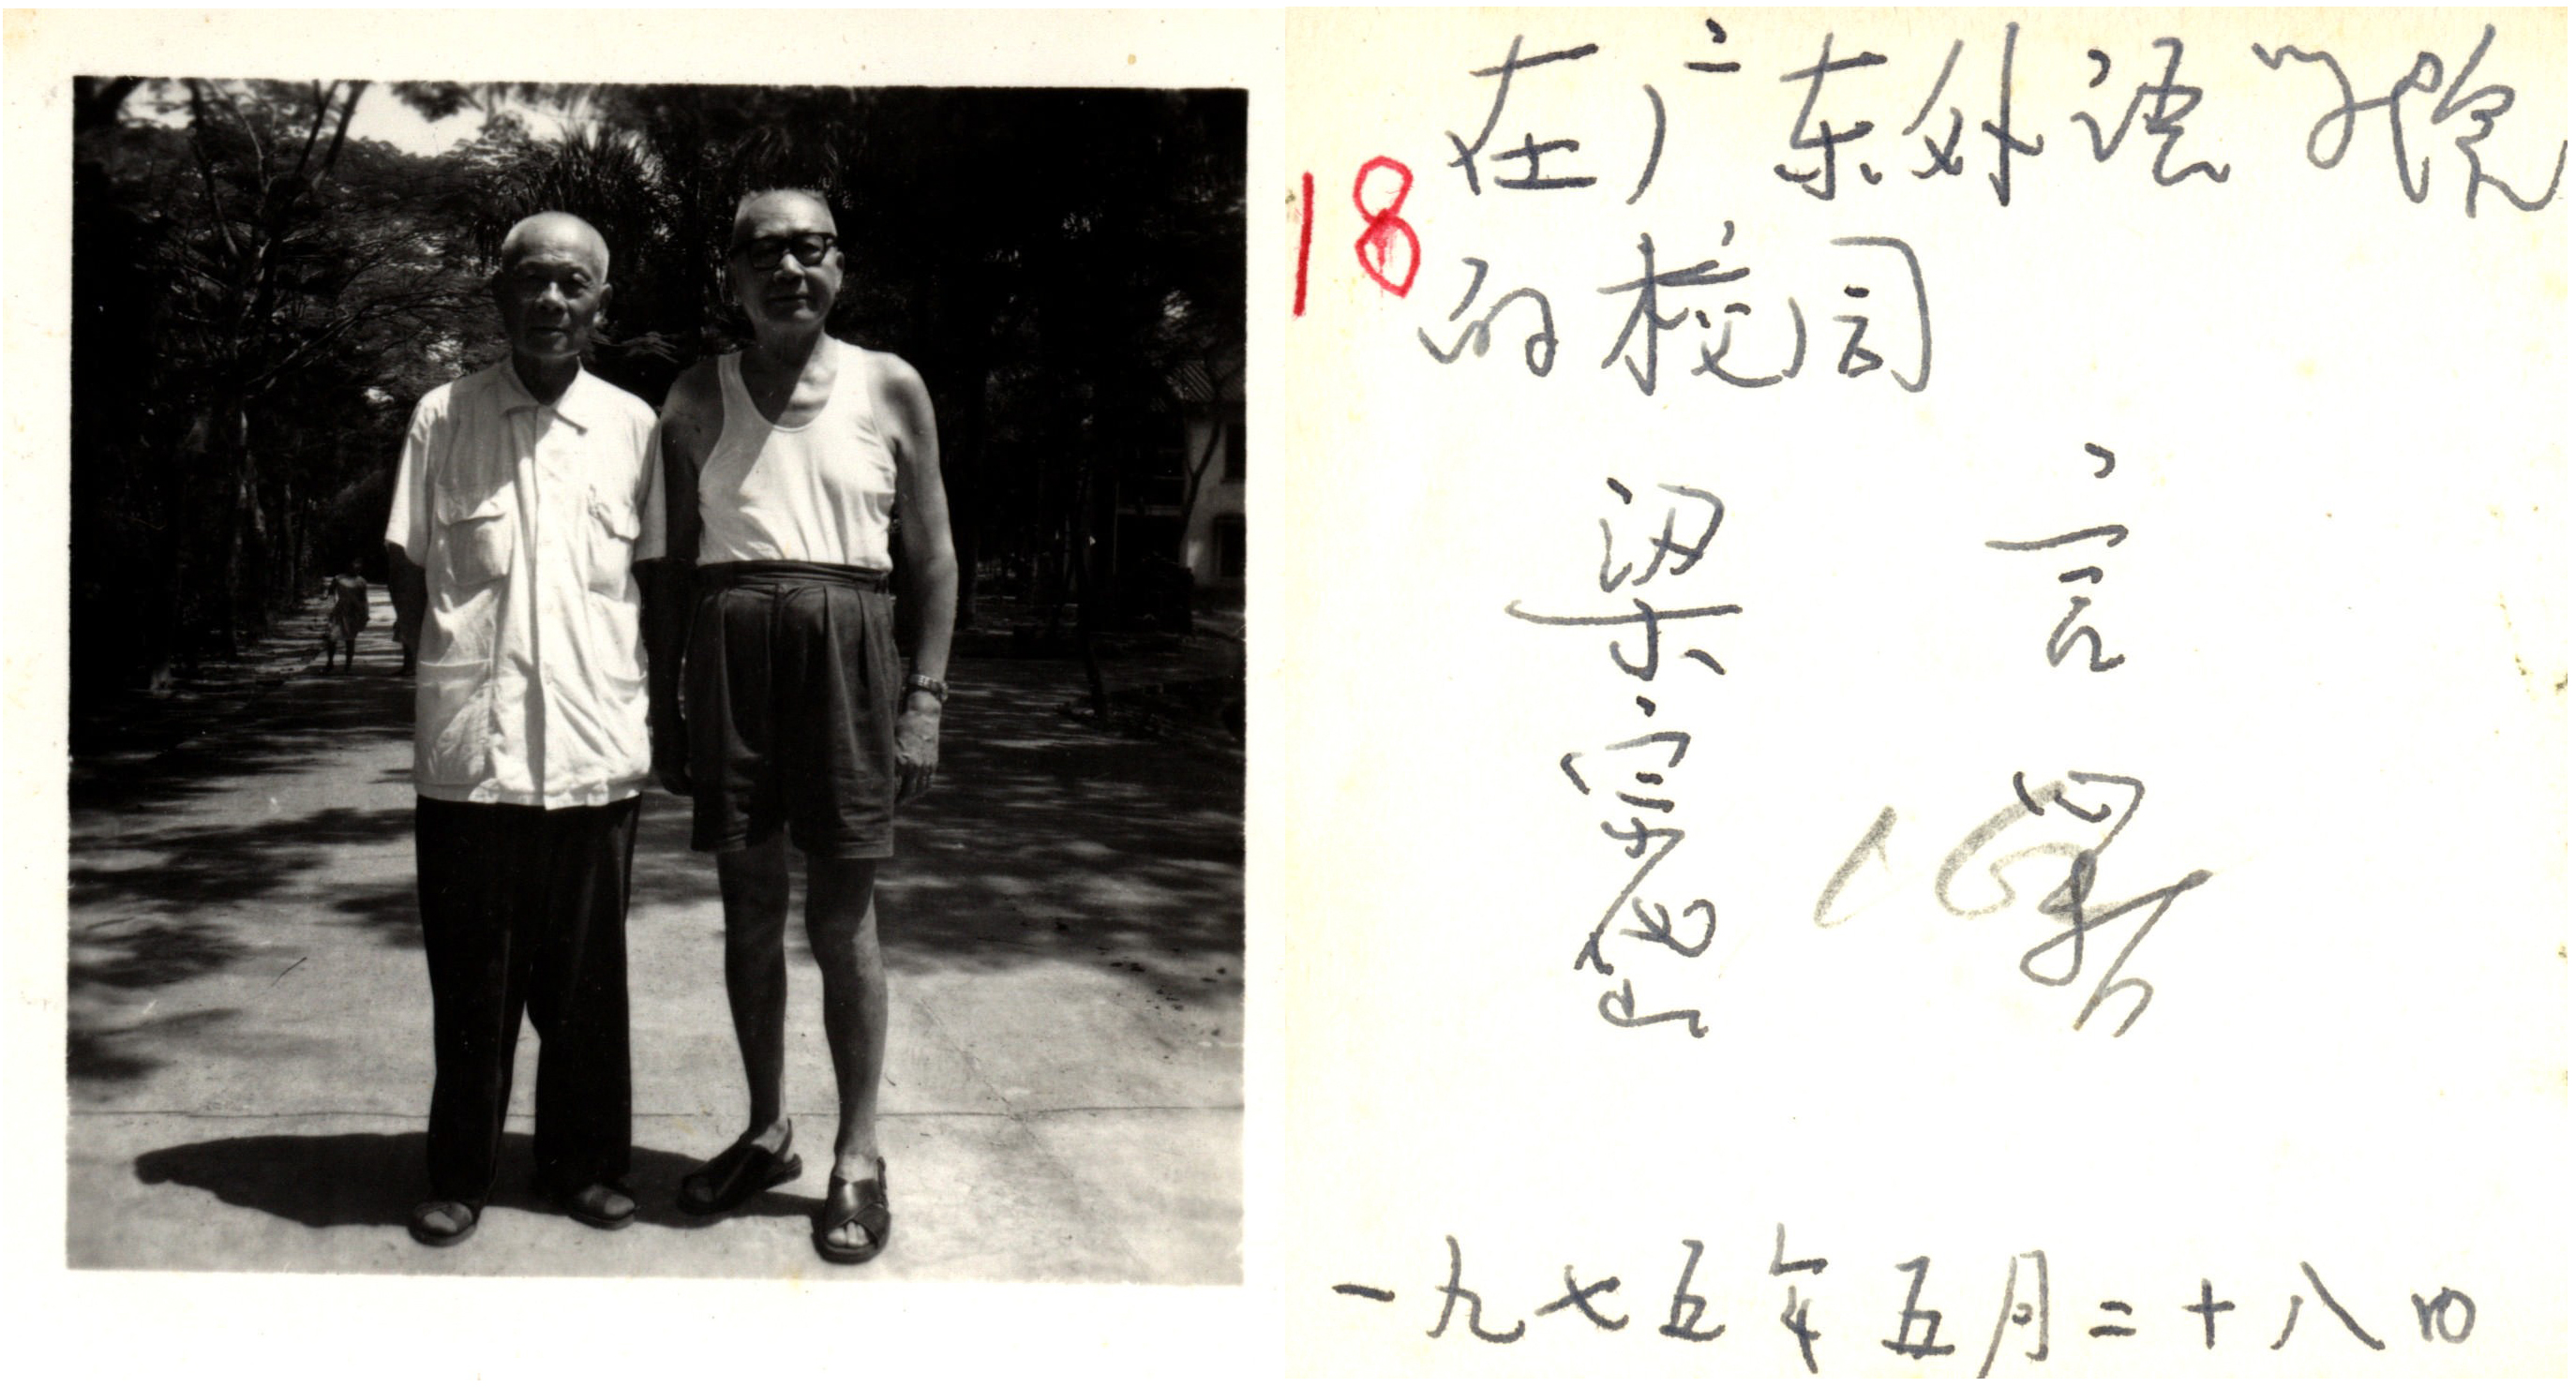 在广东外语学院
18
的校园
梁宗岱
16
一九七五年五月二十八日